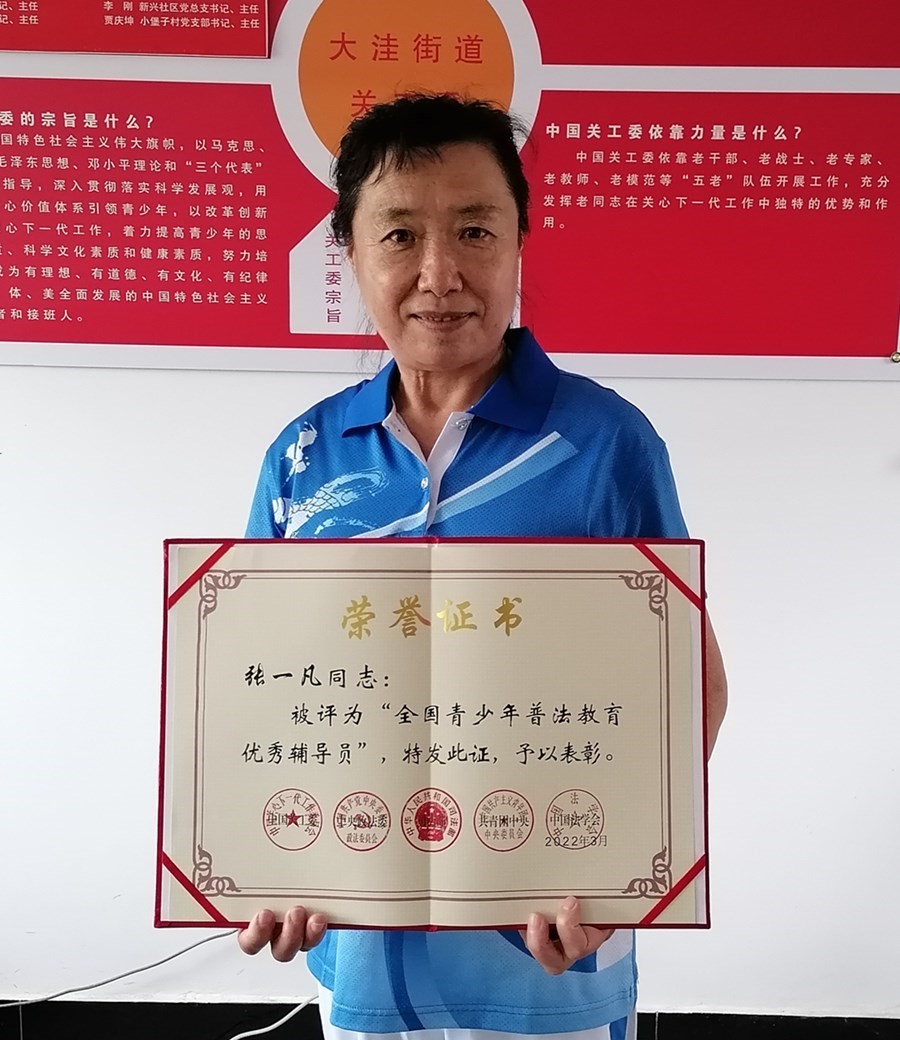 记、主任
李 刚 新兴社区党总支书记、主任
记、主任
贾庆坤 小堡子村党支部书记、主任
大洼街道
关
委的宗旨是什么？
国特色社会主义伟大旗帜，以马克思、
毛泽东思想、邓小平理论和“三个代表”
指导，深入贯彻落实科学发展观，用
心价值体系引领青少年，以改革创新
心下一代工作，着力提高青少年的思
、科学文化素质和健康素质，努力培
成为有理想、有道德、有文化、有纪律
体、美全面发展的中国特色社会主义
者和接班人。
关工委宗旨
中国关工委依靠力量是什么？
中国关工委依靠老干部、老战士、老专家、
老教师、老模范等“五老”队伍开展工作，充分
发挥老同志在关心下一代工作中独特的优势和作
用。
荣誉证书
张一凡同志：
被评为“全国青少年普法教育
优秀辅导员”，特发此证，予以表彰。
中国关工委
中央政法委
政法委员会
中华人民共和国司法部
共青团中央
中央委员会
中国法学会
2022年3月